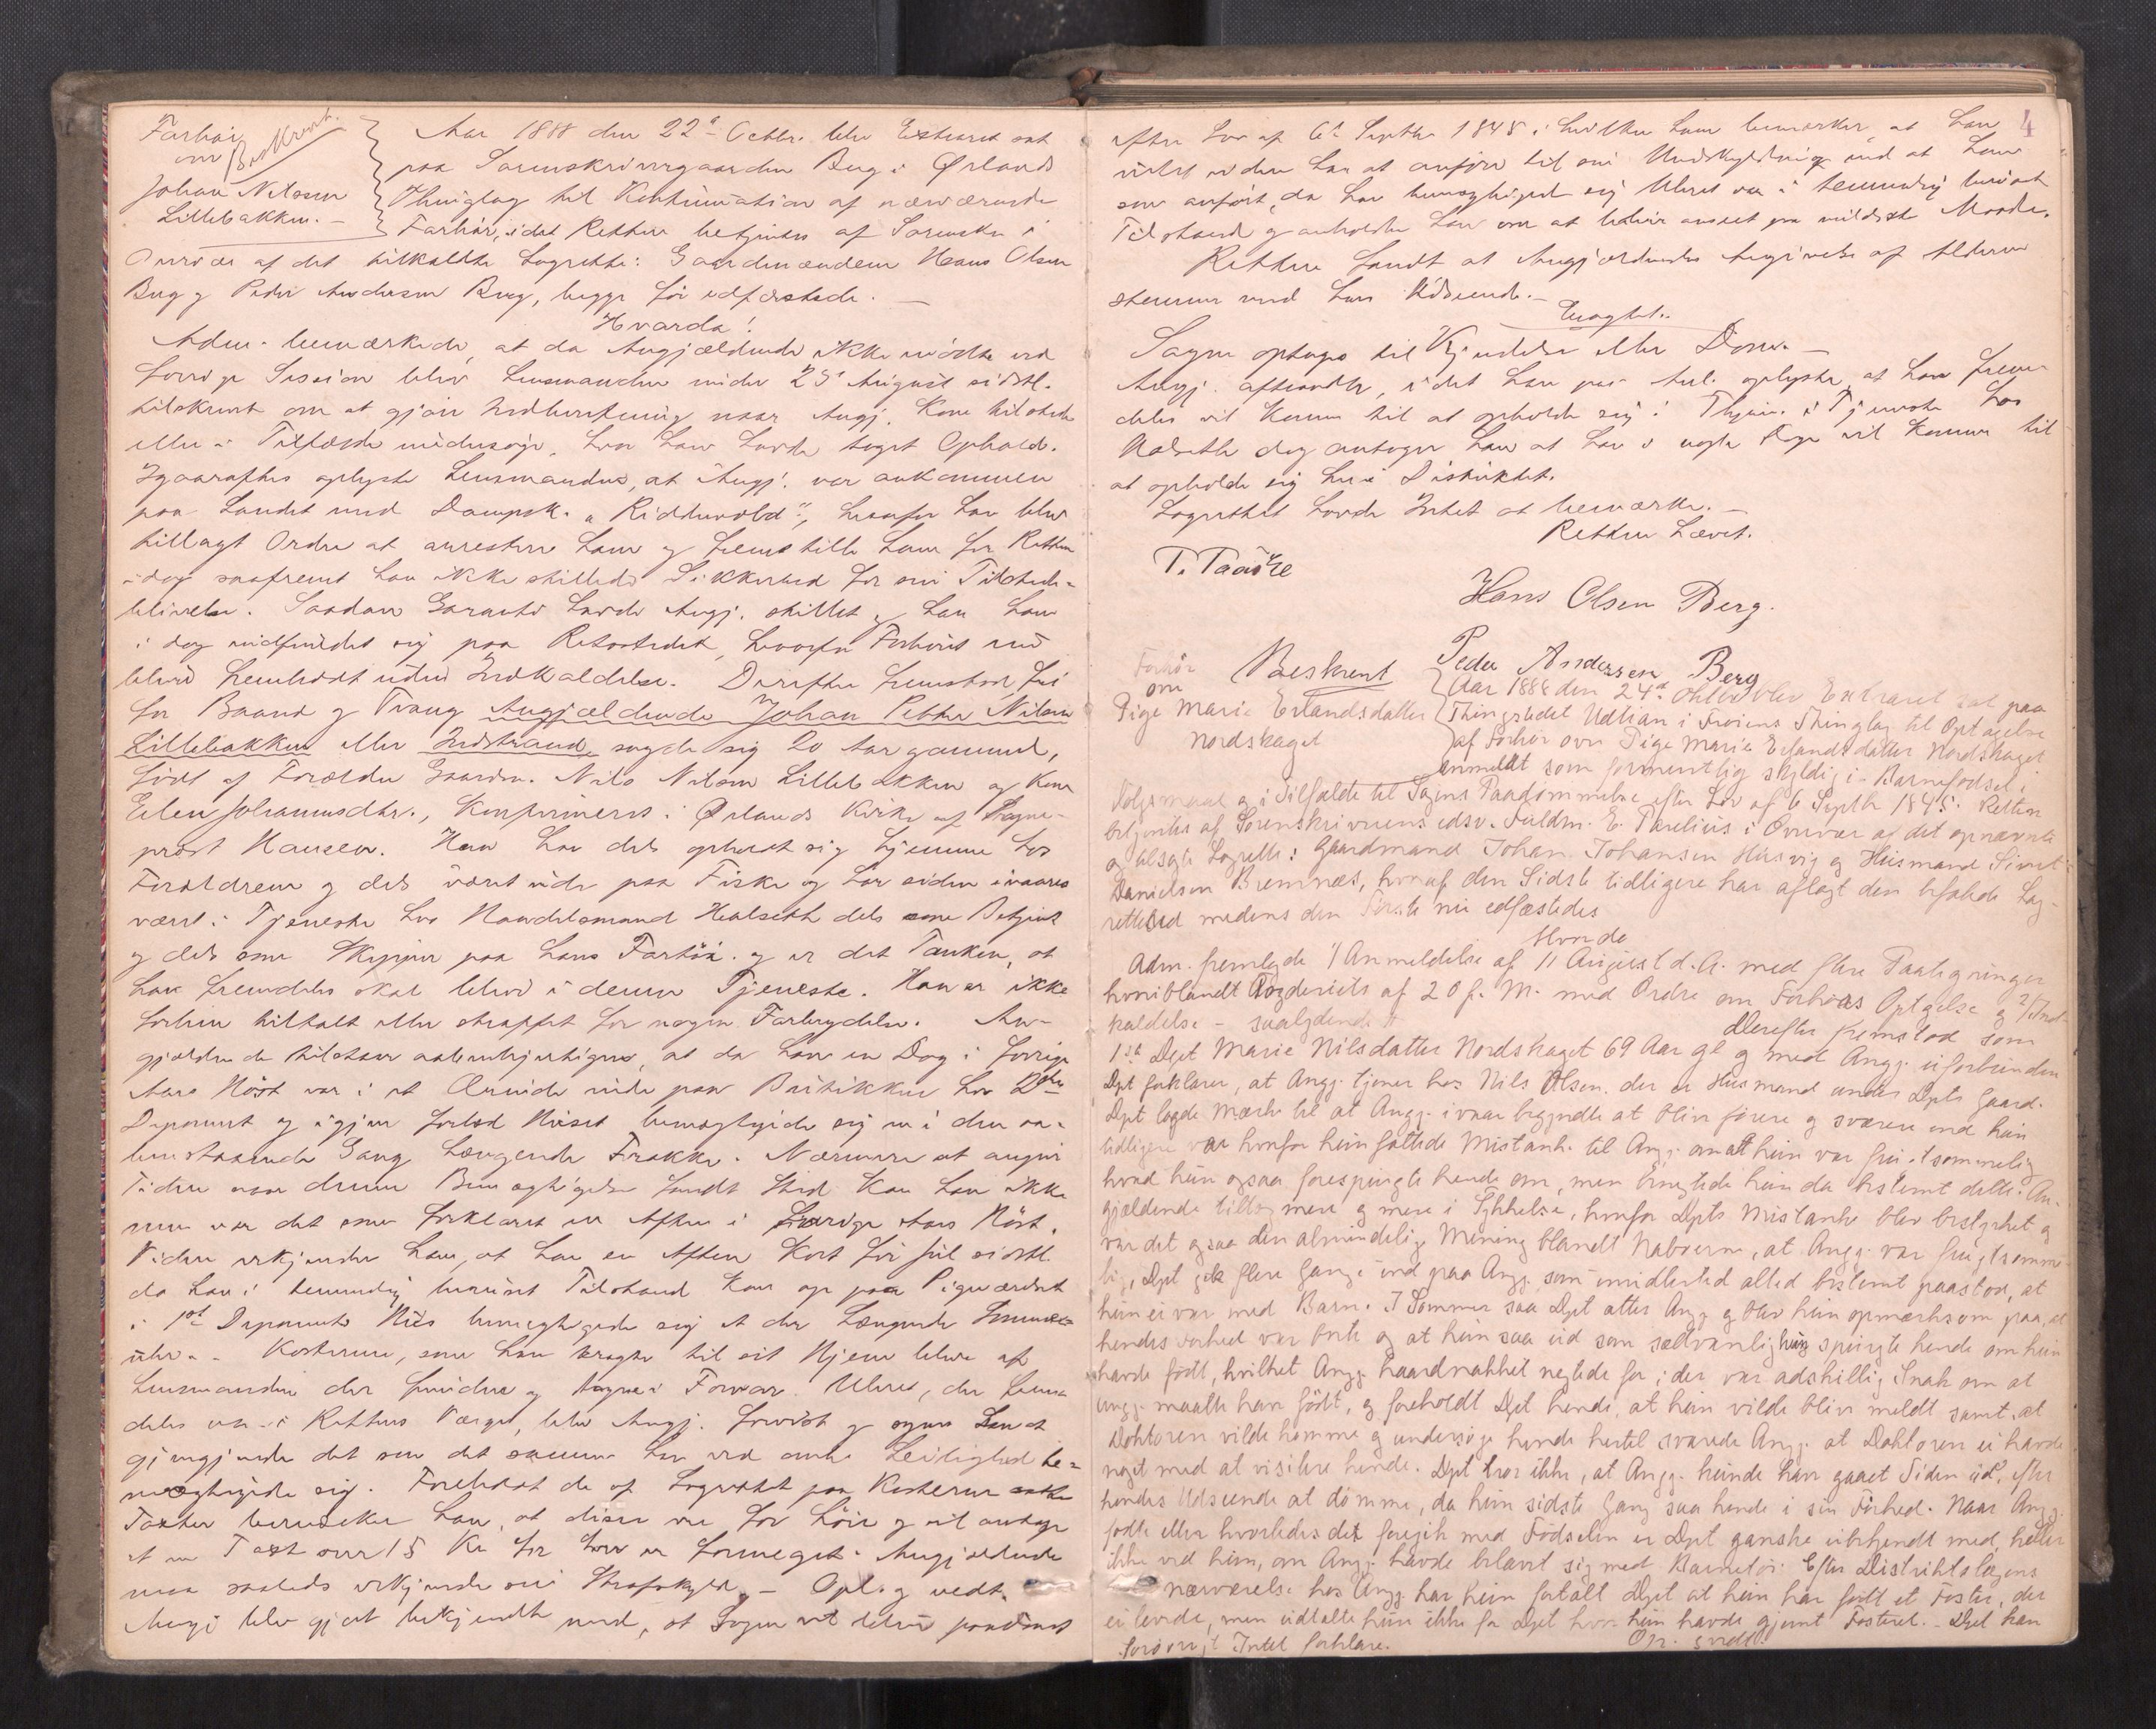 Forhör
over
Beskrevet.
Johan Nilssen
Lillebakken. -
Aar 1888 den 22de Octbr. blev Extraret sat
paa Sorenskrivergaarden Berg i Ørlands
Thinglag til Kontinuation af nærværende
Forhör, idet Retten betjentes af Sorenskr. i
Overvær af det tilkaldte Lagrette: Gaardmændene Hans Olsen
Berg og Peder Andersen Berg, begge før edfæstede. -
Hvorda!
Adm. bemærkede, at da Angjældende ikke mødte ved
forrige Session blev Lensmanden under 25de August sidstl.
tilskrevet om at gjøre Indberetning naar Angj. kom tilstede
eller i Tilfælde undersøge, hvor han havde taget Ophold.
Igaaraftes oplyste Lensmanden, at Angj. var ankommen
paa Landet med Dampsk. "Riddervold", hvorfor han blev
tillagt Ordre at arrestere ham og fremstille ham for Retten
idag saafremt han ikke stillede Sikkerhed for sin Tilstede-
blivelse. Saadan Garanti havde Angj. stillet og han har
i dag indfundet sig paa Retsstedet, hvorfor Forhöret nu
blev fremholdt uden Indkaldelse. Derefter fremstod fri
for Baand og Tvang Angjældende Johan Petter Nilssen
Lillebakken eller Indstrand, sagde sig 20 Aar gammel,
født af Forældre Gaardm. Nils Nilsen Lillebakken og Kone
Elen Johannesdtr., konfirmeret i Ørlands Kirke af Sogne-
prest Hansen. Han har dels opholdt sig hjemme hos
Forældrene og dels været ude paa Fiske og har siden ivaares
været i Tjeneste hos Handelsmand Halseth dels som Betjent
og dels som Skipper paa hans Fartöi og er det Tanken, at
han fremdeles skal blive i denne Tjeneste. Han er ikke
forhen tiltalt eller straffet for nogen Forbrydelse. An-
gjældende tilstaar aabenhjertigen, at da han en Dag i forrige
Aars Höst var i et Ærinde inde paa Butikken hos
Deponent og igjen forlod Huset bemægtigede sig en i den
Gang hængende Frakke. Nærmere at angive
Tiden naar denne Bemægtigelse fandt Sted kan han ikke
men var det som forklaret en Aften i forrige Aars Höst.
Videre erkjender han, at han en Aften kort før Jul sidstl.
da han i temmelig beruset Tilstand kom op paa Pigeværelset
i 1ste Deponents Hus bemægtigede sig et der hængende
uhr. - Kosterne, som han bragte til sit Hjem blev af
Lensmanden der fundne og tagne i Forvar. Uhret, der frem-
deles er i Rettens Værge, blev Angj. forevist og synes han at
gjenkjende det som det samme han ved omh. Leilighed be-
mægtigede sig. Foreholdt de af Lagrettet paa Kosterne satte
Taxter bemærker han, at disse ere for höie og vil antage
at en Taxt over 15 Kr for er formeget. Angjældende
maa saaledes erkjende sin Strafskyld. - Opl. og vedt.
Angj. blev gjort bekjendt med, at Sagen vil blive paadömt
4
efter Lov af 6te Septbr 1845 i hvilken han bemærker at han
intet videre har at anføre til sin Undskyldning end at han
som anfört, da han bemægtigede sig Uhret var i temmelig beruset
Tilstand og anholder han om at blive anseet paa mildeste Maade.
Retten fandt at Angjældendes Angivelse af Alderen
stemmer med hans Udseende. -
Eragtet.
Sagen optages til Kjendelse eller Dom. -
Angj. aftraadte, idet han paa Anl. oplyste, at han frem-
deles vil komme til at opholde sig i Thjem. i Tjeneste hos
Halseth dog antager han at han i nogle Dage vil komme til
at opholde sig her i Distriktet.
Lagrettet havde Intet at bemærke. -
Retten hævet.
T. Taaske
Hans Olsen Berg.
Peder Andersen Berg
Forhör
over
Beskrevet
Pige Marie Erlandsdatter
Nordskaget
Aar 1888 den 24de Oktbr blev Extraret sat paa
Thingstedet Udtian i Frøiens Thinglag til Optagelse
af Forhör over Pige Marie Erlandsdatter Nordskaget
anmeldt som formentlig skyldig i Barnefödsel i
Dølgsmaal og i Tilfælde til Sagens Paadømmelse efter Lov af 6 Septbr 1845. Retten
betjentes af Sorenskriverens edsv. Fuldm. E. Parelius i Overvær af det opnævnte
og tilsagte Lagrette: Gaardmand Johan Johansen Husvig og Husmand Sivert
Danielsen Bremnæs, hvoraf den Sidste tidligere har aflagt den befalede Lag-
retteEd medens den Første nu edfæstedes
Hvorda
Adm. fremlagde 1/ Anmeldelse af 11 August d. A. med flere Paategninger
hvoriblandt Fogderiets af 20 f. M. med Ordre om Forhørs Optagelse og 2/ Ind-
kaldelse - saalydende #
Derefter fremstod som
1ste Dpt Marie Nilsdatter Nordskaget 69 Aar gl og med Angj. uforbunden
Dpt forklarer, at Angj. tjener hos Nils Olsen, der er Husmand under Dpts Gaard.
Dpt lagde Mærke til at Angj. ivaar begyndte at blive førere og sværere end hun
tidligere var hvorfor hun fattede Mistanke til Angj. om at hun var frugtsommelig
hvad hun ogsaa forespurgte hende om, men benegtede hun da bestemt dette. An-
gjældende tiltog mere og mere i Tykkelse, hvorfor Dpts Mistanke blev bestyrket og
var det ogsaa den almindelige Mening blandt Naboerne, at Angj. var frugtsomme-
lig. Dpt gik flere Gange ind paa Angj. som imidlertid altid bestemt paastod, at
hun ei var med Barn. I Sommer saa Dpt atter Angj. og blev hun opmærksom paa, at
hendes Førhed var borte og at hun saa ud som sædvanlig hun spurgte hende om hun
havde født, hvilket Angj. haardnakket negtede for; der var adskillig Snak om at
Angj. maatte have født, og foreholdt Dpt hende, at hun vilde blive meldt samt at
Doktoren vilde komme og undersøge hende hertil svarede Angj. at Doktoren ei havde
noget med at visitere hende. Dpt tror ikke, at Angj. kunde have gaaet Tiden ud, efter
hendes Udseende at dömme, da hun sidste Gang saa hende i sin Førhed. Naar Angj.
födte eller hvorledes det foregik med Födselen er Dpt ganske ubekjendt med, heller
ikke ved hun, om Angj. havde belavet sig med Barnetøi. Efter Distriktslægens
nærværelse hos Angj. har hun fortalt Dpt at hun har født et Foster, der
ei levede, men udtalte hun ikke for Dpt hvor hun havde gjemt Fosteret. - Dpt kan
forøvrigt Intet forklare.
Op. vedt.